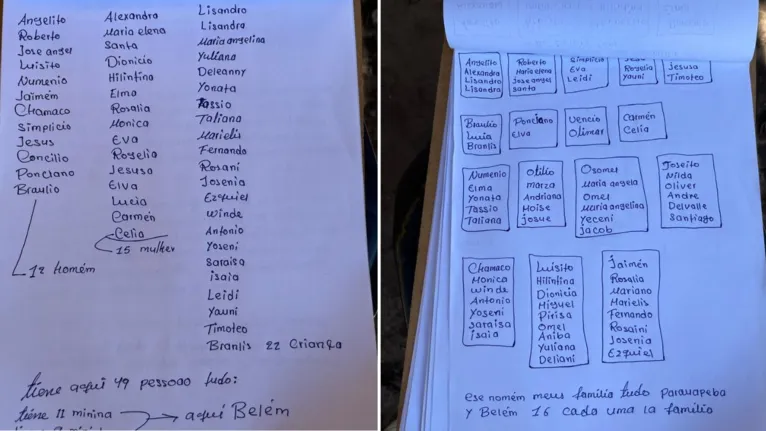 Angelito
Roberto
Jose angel
Luisito
Numenio
Jaimén
Chamaco
Simplicio
Jesus
Concilio
Ponciano
Braulio
12 homém
Alexandra
Maria elena
Santa
Dionicio
Hilintina
Elma
Rosalia
Monica
Eva
Rogelia
Jesusa
Elva
Lucia
Carmén
Celia
15 mulher
Lisandro
Lisandra
Maria angelina
Yuliana
Deleanny
Yonata
Tassio
Taliana
Marielis
Fernando
Rosani
Josenia
Ezquiel
Winde
Antonio
Yoseni
Saraisa
isaia
Leidi
Yauni
Timoteo
Branlis 22 Criança
tiene aqui 49 pessoao tudo:
tiene 11 minina aqui Belém
Angelito
Alexandra
Lisandro
Lisandra
Roberto
Maria elena
Jose angel
Santa
Simplicio
Eva
Leidi
Rogelia
Yauni
Jesusa
Timoteo
Braulio
Lucia
Branlis
Ponciano
Elva
Uencio
Olimar
Carmén
Celia
Numenio
Elma
Yonata
Tassio
Taliana
Otilio
Marza
Andriana
Moise
Josue
Osomel
Maria angela
Omel
Maria angelina
Yeceni
Jacob
Joseito
Nilda
Oliver
Andre
Delvalle
Santiago
Chamaco
Monica
Winde
Antonio
Yoseni
Saraisa
isaia
Luisito
Hilintina
Dionicia
Miguel
Pirisa
Omel
Aniba
Yuliana
Deliani
Jaimén
Rosalia
Mariano
Marielis
Fernando
Rosaini
Josenia
Ezquiel
ese nomém meus familia tudo Parauapeba
y Belém 16 cada uma la familia